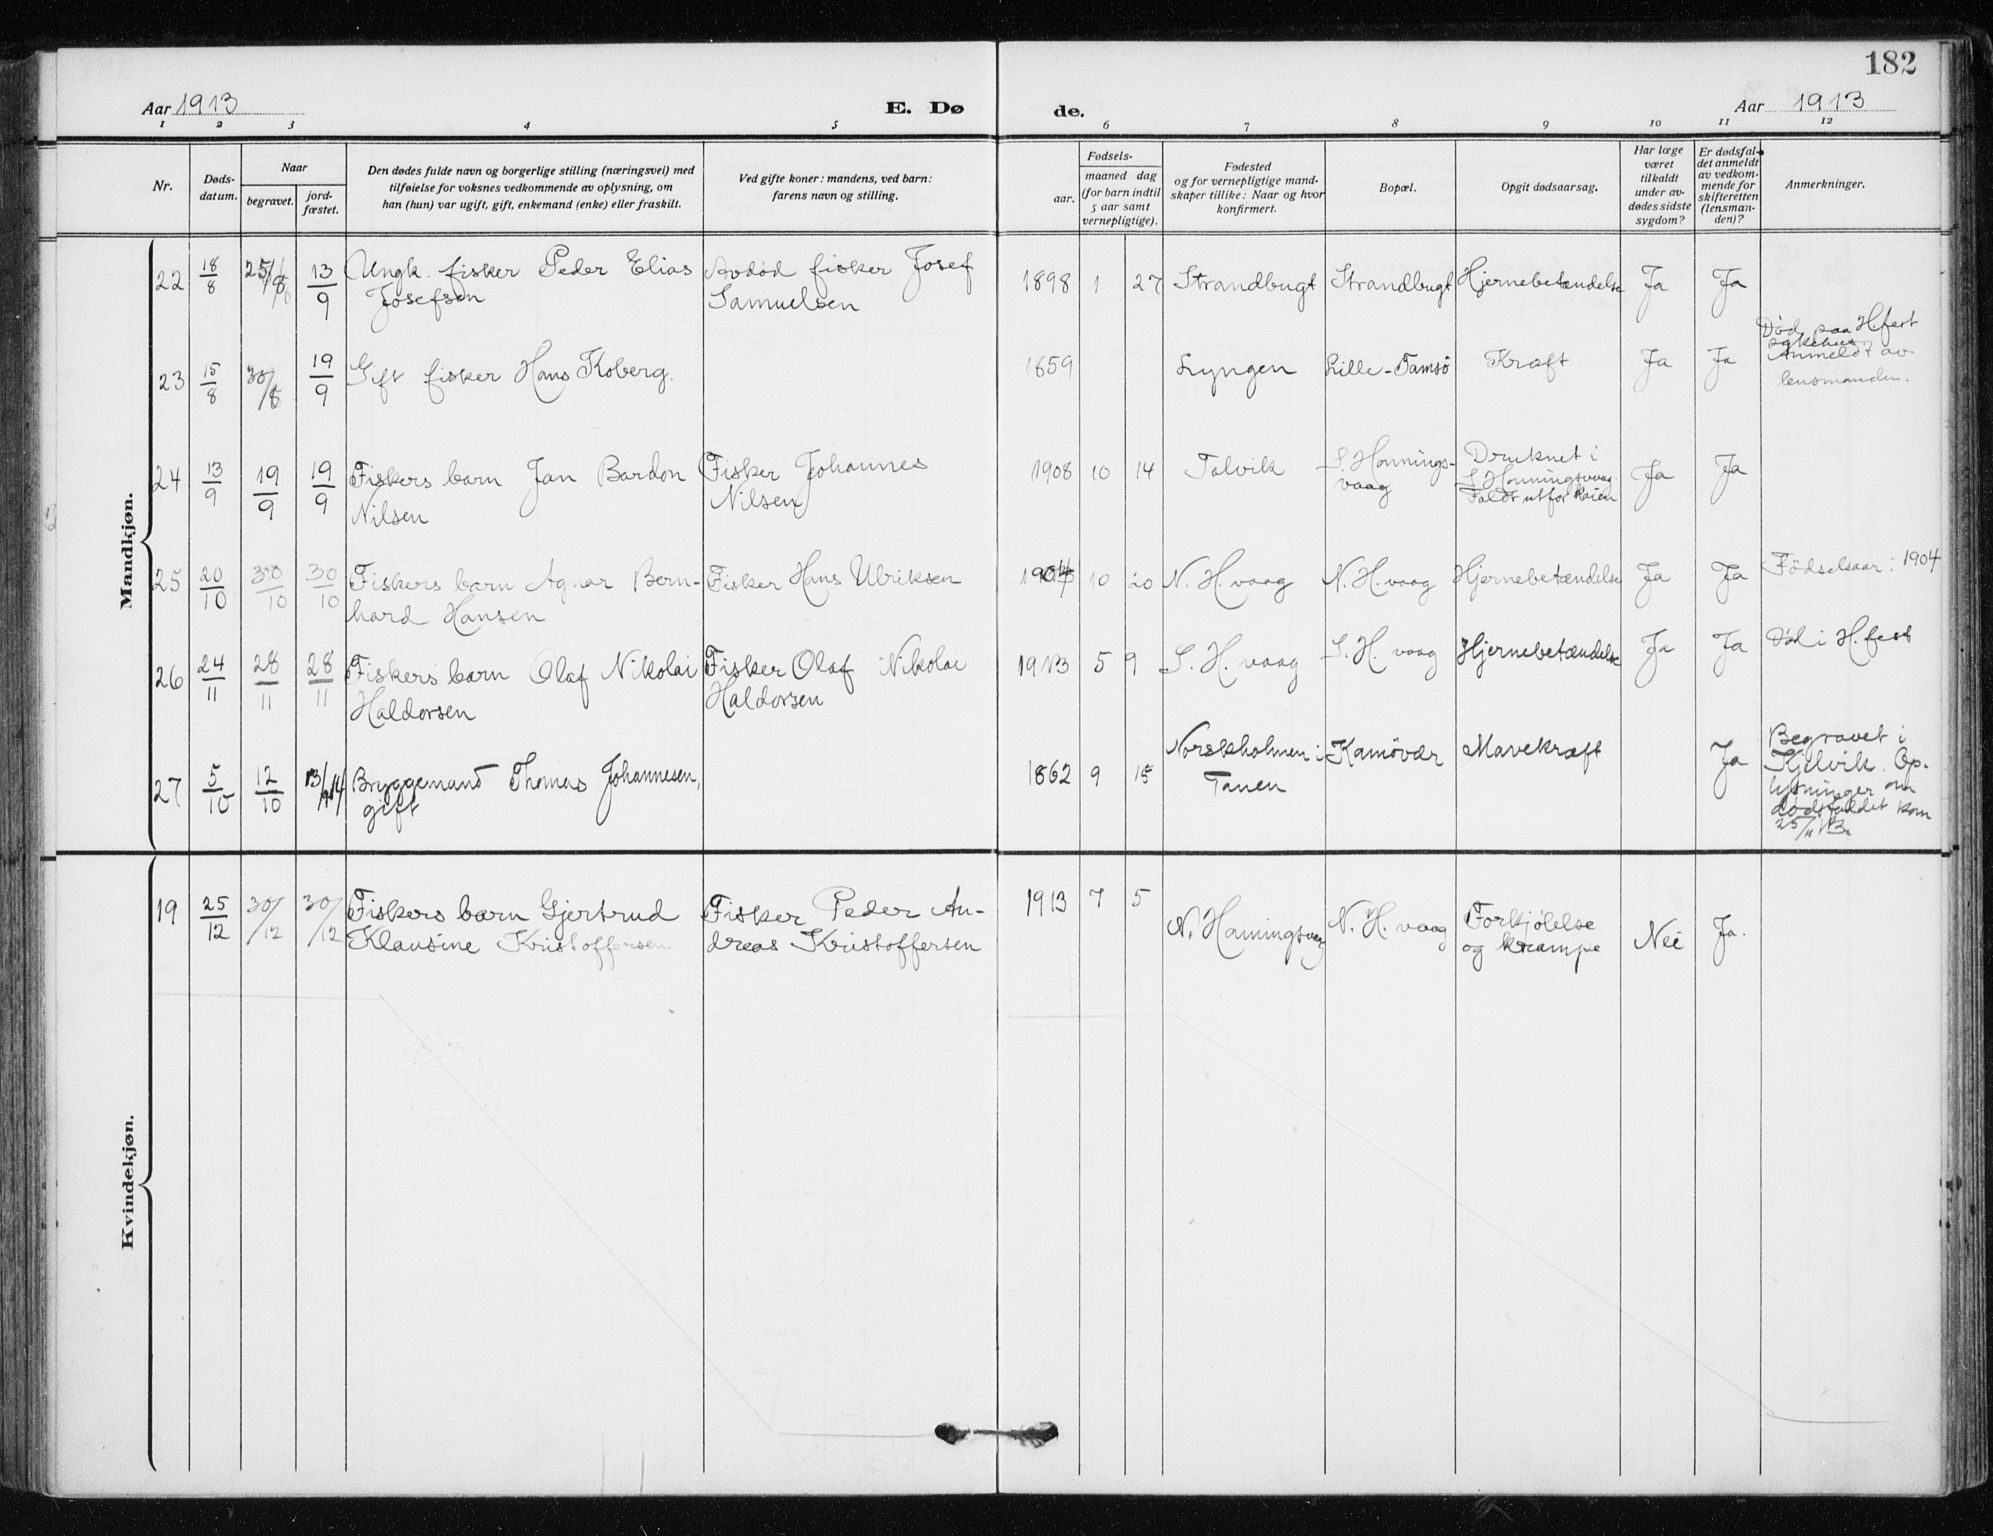 182
Aar 1913 E. Dø de. Aar 1913
1 2 3 4 5 6 7 8 9 10 11 12
Nr.
Døds-
datum.
Naar
begravet.
jord-
fæstet.
Den dødes fulde navn og borgerlige stilling (næringsvei) med
tilføielse for voksnes vedkommende av oplysning, om
han (hun) var ugift, gift, enkemand (enke) eller fraskilt.
Ved gifte koner: mandens, ved barn:
farens navn og stilling.
Fødsels-
aar.
maaned dag
(for barn indtil
5 aar samt
vernepligtige).
Fødested
og for vernepligtige mand-
skaper tillike: Naar og hvor
konfirmert.
Bopæl.
Opgit dødsaarsag.
Har læge
været
tilkaldt
under av-
dødes sidste
sygdom?
Er dødsfal-
det anmeldt
av vedkom-
mende for
skifteretten
(lensman-
den)?
Anmerkninger.
Mandkjøn.
22 18/8 25/8 13/9 Ungk. fisker Peder Elias
Josefsen
Avdød fisker Josef
Samuelsen
1898 1 27 Strandbugt Strandbugt Hjernebetændelse Ja Ja
23 15/8 30/8 19/9 Gift fisker Hans Koberg.
1859 Lyngen Lille-Tamsö Kræft Ja Ja
Död paa H.fest
sykehus
Anmeldt av
lensmanden.
24 13/9 19/9 19/9 Fiskers barn Jan Bardon
Nilsen
Fisker Johannes
Nilsen
1908 10 14 Talvik
S. Honnings-
vaag
Druknet i
S. Honningsvaag
Faldt utfor kaien
Ja Ja
25 20/10 30/10 30/10 Fiskers barn Agnar Bern-
hard Hansen
Fisker Hans Ulriksen
1904 10 20 N. H. vaag N. H. vaag Hjernebetændelse Ja Ja Födselsaar: 1904
26 24/11 28/11 28/11 Fiskers barn Olaf Nikolai
Haldorsen
Fisker Olaf Nikolai
Haldorsen
1913 5 9 S. H. vaag S. H. vaag Hjernebetændelse Ja Ja Död i H. fest
27 5/10 12/10 13/4 14 Bryggemand Thomas Johannesen,
gift
1862 9 15 Norskholmen i
Tanen
Kamövær Mavekræft Ja
Begravet i
Kjelvik. Op-
lysninger om
dödsfaldet kom
25/11 13.
Kvindekjøn.
19 25/12 30/12 30/12 Fiskers barn Gjertrud
Klausine Kristoffersen
Fisker Peder An-
dreas Kristoffersen
1913 7 5 N. Honningsvaag N. H. vaag
Forkjölelse
og krampe
Nei Ja.